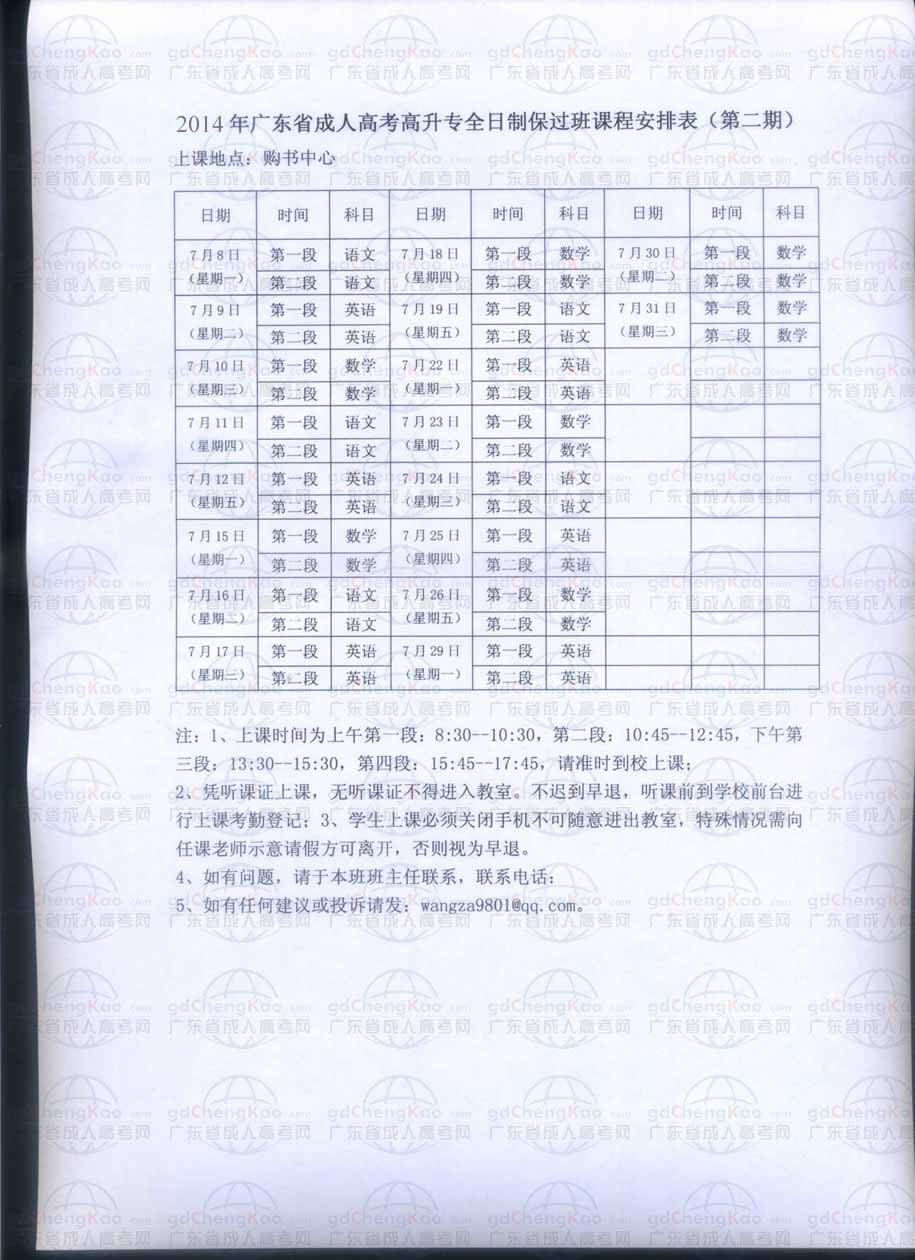 2014年广东省成人高考高升专全日制保过班课程安排表（第二期）
上课地点：购书中心
日期 时间 科目 日期 时间 科目 日期 时间 科目
7月8日 第一段 语文 7月18日 第一段 数学 7月30日 第一段 数学
（星期一） 第二段 语文 （星期四） 第二段 数学 （星期二） 第二段 数学
7月9日 第一段 英语 7月19日 第一段 语文 7月31日 第一段 数学
（星期二） 第二段 英语 （星期五） 第二段 语文 （星期三） 第二段 数学
7月10日 第一段 数学 7月22日 第一段 英语
（星期三） 第二段 数学 （星期一） 第二段 英语
7月11日 第一段 语文 7月23日 第一段 数学
（星期四） 第二段 语文 （星期二） 第二段 数学
7月12日 第一段 英语 7月24日 第一段 语文
（星期五） 第二段 英语 （星期三） 第二段 语文
7月15日 第一段 数学 7月25日 第一段 英语
（星期一） 第二段 数学 （星期四） 第二段 英语
7月16日 第一段 语文 7月26日 第一段 数学
（星期二） 第二段 语文 （星期五） 第二段 数学
7月17日 第一段 英语 7月29日 第一段 英语
（星期三） 第二段 英语 （星期一） 第二段 英语
注：1、上课时间为上午第一段：8:30--10:30，第二段：10:45--12:45，下午第
三段：13:30--15:30，第四段：15:45--17:45，请准时到校上课；
2、凭听课证上课，无听课证不得进入教室。不迟到早退，听课前到学校前台进
行上课考勤登记；3、学生上课必须关闭手机不可随意进出教室，特殊情况需向
任课老师示意请假方可离开，否则视为早退。
4、如有问题，请于本班班主任联系，联系电话：
5、如有任何建议或投诉请发：wangza9801@qq.com。
gdChengKao.com
广东省成人高考网